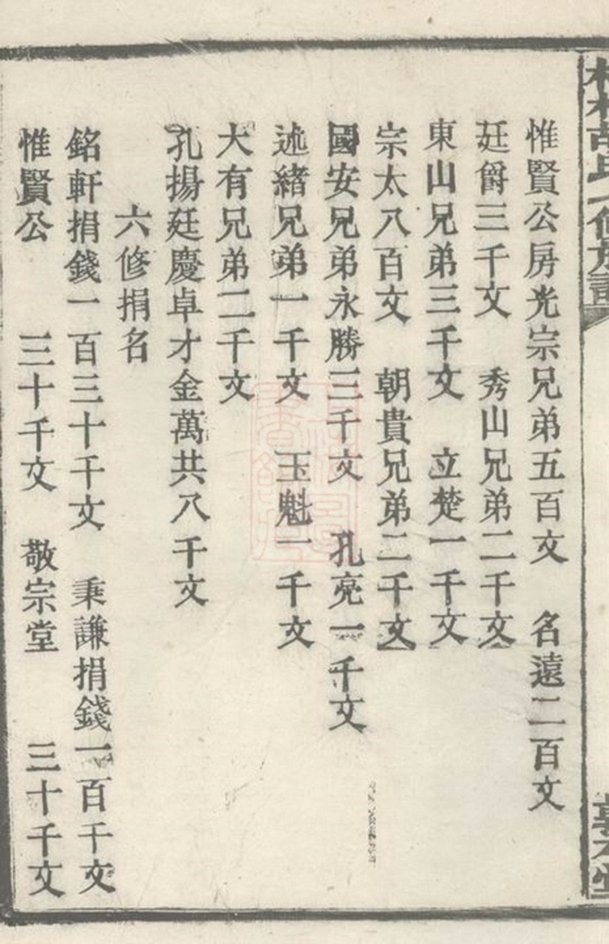 惟賢公房光宗兄弟五百文　名遠二百文
廷爵三千文　秀山兄弟二千文
東山兄弟三千文　立楚一千文
宗太八百文　朝貴兄弟二千文
國安兄弟永勝三千文　孔亮一千文
述緒兄弟一千文　玉魁一千文
大有兄弟二千文
孔揚廷慶卓才金萬共八千文
六修捐名
銘軒捐錢一百三十千文　秉謙捐錢一百千文
惟賢公　三十千文　敬宗堂　三十千文